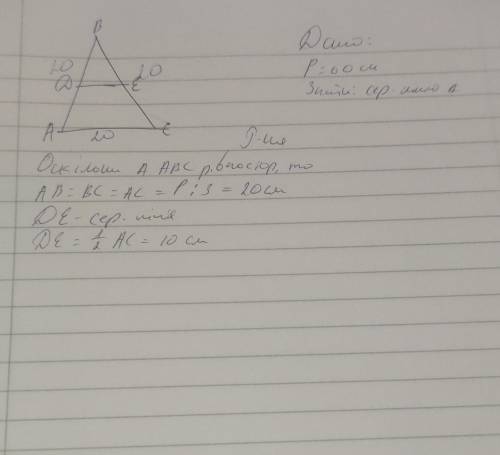 B
20 20
D E
A 20 C
Дано:
P = 60 см
Знайти: сер. лінію Δ
Р-ня
Оскільки Δ ABC рівностор, то
AB = BC = AC = P : 3 = 20 см
DE - сер. лінія
DE = 1/2 AC = 10 см